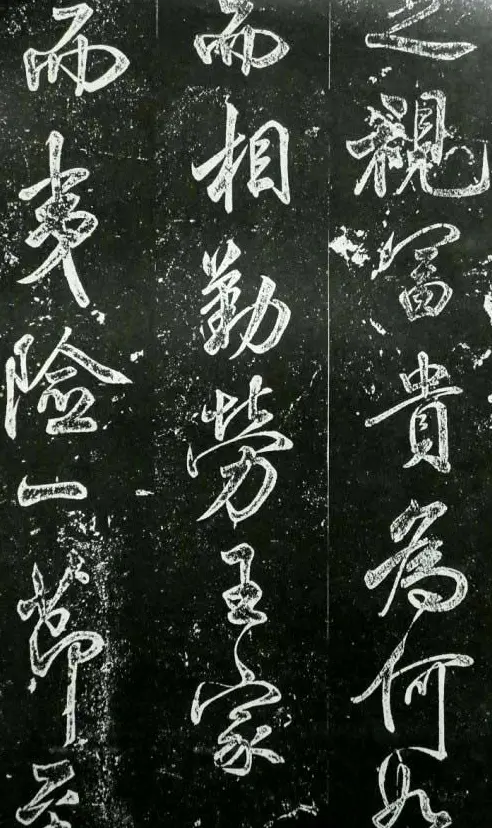 之視冨貴為何如
而相勤勞王家
而夷險一節至